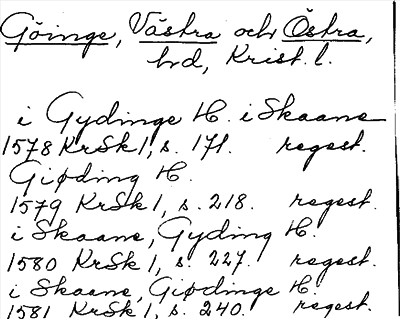 Göinge, Västra och Östra,
hrd, Krist. l.
i Gydinge H. i Skaane
1578 KrSk 1, s. 171. regest.
Giøding H.
1579 KrSk 1, s. 218. regest.
i Skaane, Gyding H.
1580 KrSk 1, s. 227. regest.
i Skaane, Giødinge H.
1581 KrSk 1, s. 240. regest.